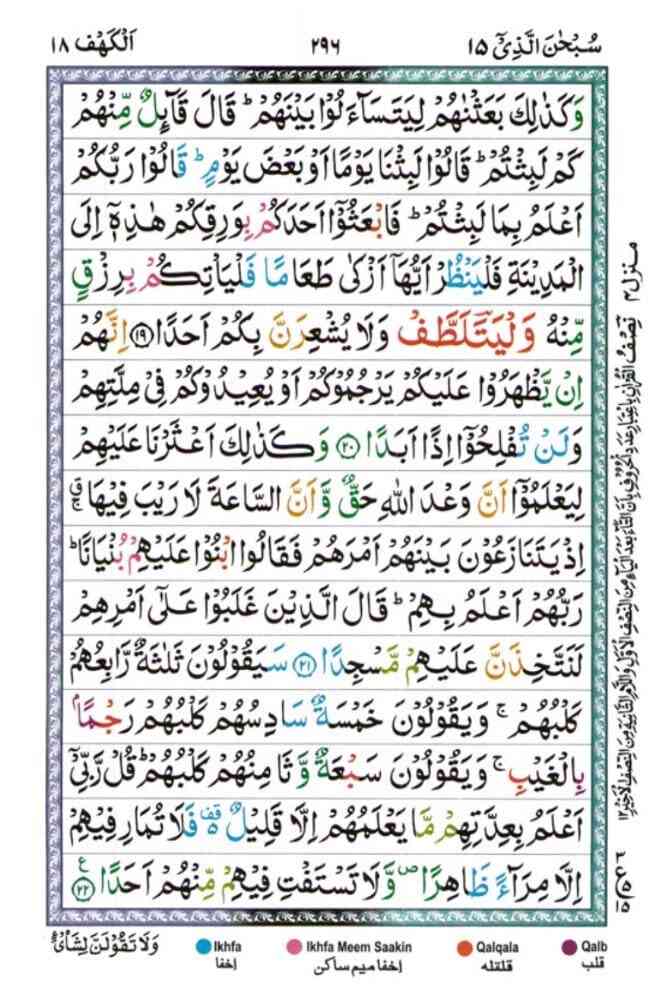 سُبْحٰنَ الَّذِیْۤ ۱۵
۲۹۶
اَلْکَهْف ۱۸
وَكَذٰلِكَ بَعَثْنٰهُمْ لِيَتَسَآءَلُوْا بَيْنَهُمْ ؕ قَالَ قَآئِلٌ مِّنْهُمْ
كَمْ لَبِثْتُمْ ؕ قَالُوْا لَبِثْنَا يَوْمًا اَوْ بَعْضَ يَوْمٍ ؕ قَالُوْا رَبُّكُمْ
اَعْلَمُ بِمَا لَبِثْتُمْ ؕ فَابْعَثُوْۤا اَحَدَكُمْ بِوَرِقِكُمْ هٰذِهٖۤ اِلَى
الْمَدِيْنَةِ فَلْيَنْظُرْ اَيُّهَاۤ اَزْكٰى طَعَامًا فَلْيَاْتِكُمْ بِرِزْقٍ
مِّنْهُ وَلْيَتَلَطَّفْ وَلَا يُشْعِرَنَّ بِكُمْ اَحَدًا ۝۱۹ اِنَّهُمْ
اِنْ يَّظْهَرُوْا عَلَيْكُمْ يَرْجُمُوْكُمْ اَوْ يُعِيْدُوْكُمْ فِيْ مِلَّتِهِمْ
وَلَنْ تُفْلِحُوْۤا اِذًا اَبَدًا ۝۲۰ وَكَذٰلِكَ اَعْثَرْنَا عَلَيْهِمْ
لِيَعْلَمُوْۤا اَنَّ وَعْدَ اللّٰهِ حَقٌّ وَّاَنَّ السَّاعَةَ لَا رَيْبَ فِيْهَا ۚق
اِذْ يَتَنَازَعُوْنَ بَيْنَهُمْ اَمْرَهُمْ فَقَالُوا ابْنُوْا عَلَيْهِمْ بُنْيَانًا ؕ
رَبُّهُمْ اَعْلَمُ بِهِمْ ؕ قَالَ الَّذِيْنَ غَلَبُوْا عَلٰۤى اَمْرِهِمْ
لَنَتَّخِذَنَّ عَلَيْهِمْ مَّسْجِدًا ۝۲۱ سَيَقُوْلُوْنَ ثَلٰثَةٌ رَّابِعُهُمْ
كَلْبُهُمْ ۚ وَيَقُوْلُوْنَ خَمْسَةٌ سَادِسُهُمْ كَلْبُهُمْ رَجْمًۢا
بِالْغَيْبِ ۚ وَيَقُوْلُوْنَ سَبْعَةٌ وَّثَامِنُهُمْ كَلْبُهُمْ ؕ قُلْ رَّبِّيْۤ
اَعْلَمُ بِعِدَّتِهِمْ مَّا يَعْلَمُهُمْ اِلَّا قَلِيْلٌ ۵ قف فَلَا تُمَارِ فِيْهِمْ
اِلَّا مِرَآءً ظَاهِرًا ص وَّلَا تَسْتَفْتِ فِيْهِمْ مِّنْهُمْ اَحَدًا ۝۲۲ ع
منزل ۴
نصف القرآن باعتبار عدد الحروف بان التاء بعد الیاء من النصف الاول واللام الثانیة من النصف الاخیر ۱۲
وَلَا تَقُوْلَنَّ لِشَایْءٍ
Ikhfa
اخفا
Ikhfa Meem Saakin
اخفا میم ساکن
Qalqala
قلقله
Qalb
قلب